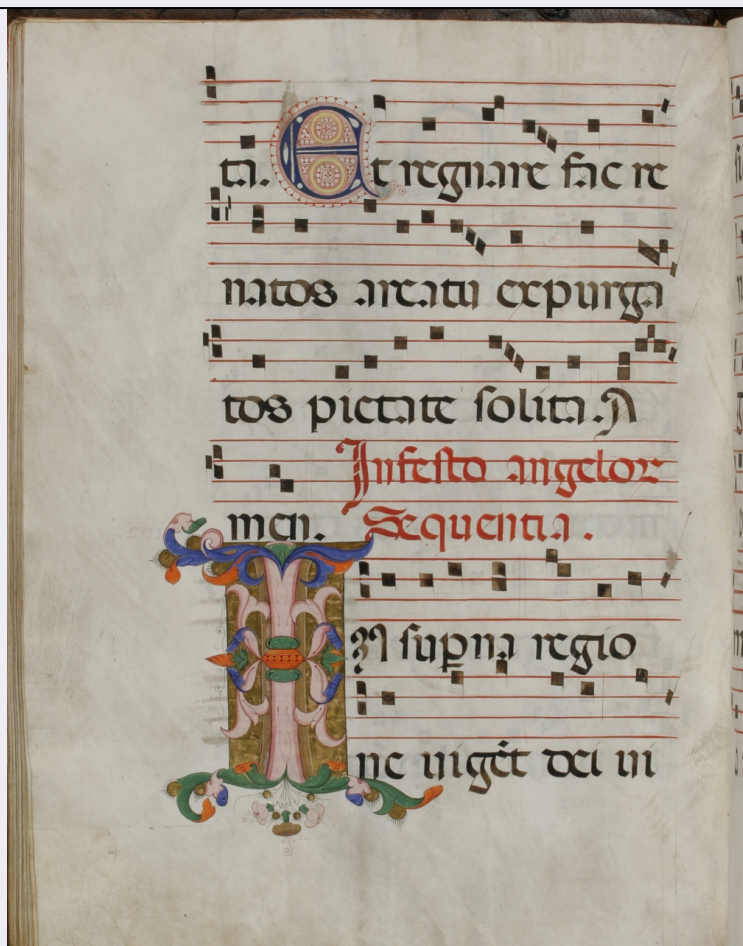 ta. Et regnare fac re
natos areatu expurga
tos pietate solita. A
Infesto angeloꝝ
men. Sequentia.
IN suꝑna regio
ne uigēt dei ui